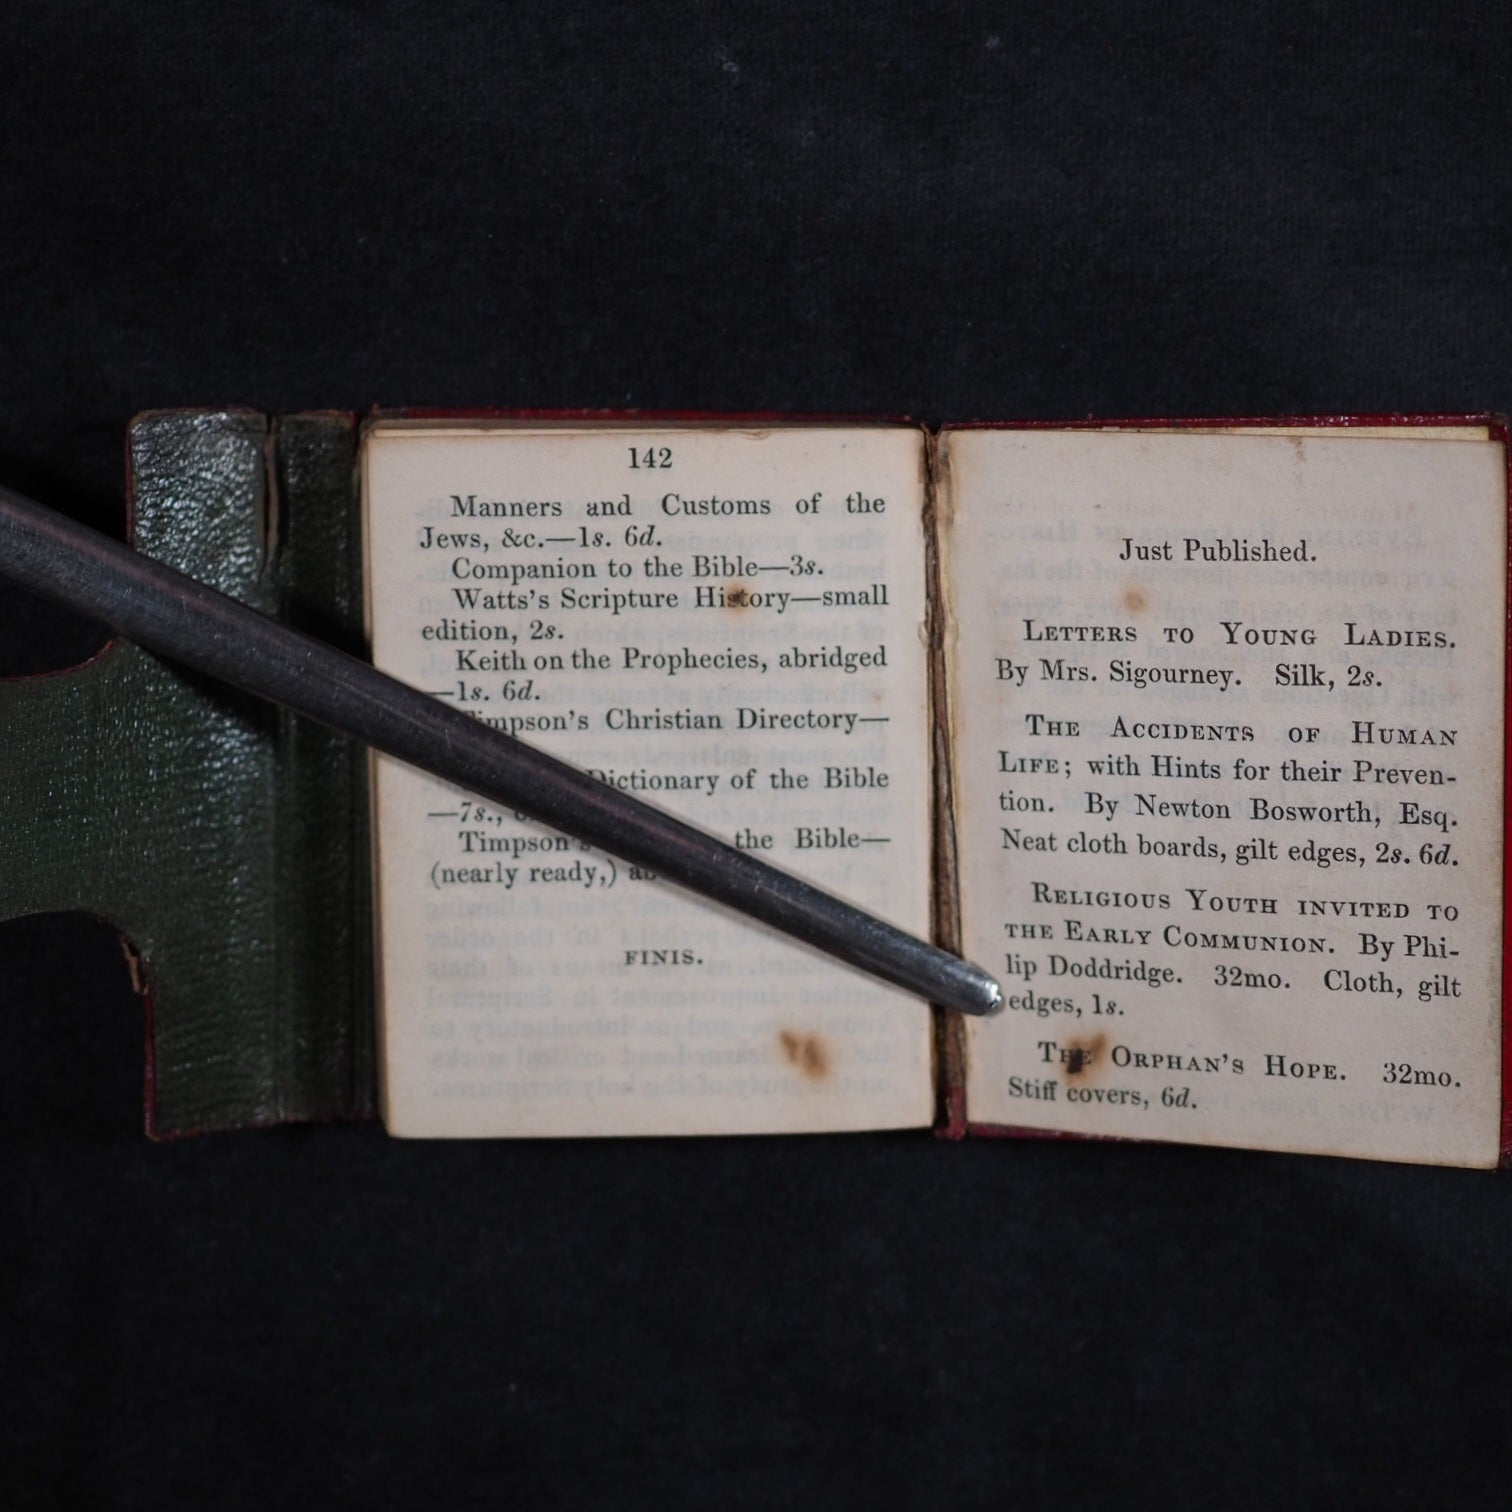 142
Manners and Customs of the
Jews, &c.—1s. 6d.
Companion to the Bible—3s.
Watts's Scripture History—small
edition, 2s.
Keith on the Prophecies, abridged
—1s. 6d.
Timpson's Christian Directory—
Dictionary of the Bible
—7s.,
Timpson's the Bible—
(nearly ready,)
FINIS.
Just Published.
LETTERS TO YOUNG LADIES.
By Mrs. Sigourney. Silk, 2s.
THE ACCIDENTS OF HUMAN
LIFE; with Hints for their Preven-
tion. By Newton Bosworth, Esq.
Neat cloth boards, gilt edges, 2s. 6d.
RELIGIOUS YOUTH INVITED TO
THE EARLY COMMUNION. By Phi-
lip Doddridge. 32mo. Cloth, gilt
edges, 1s.
THE ORPHAN'S HOPE. 32mo.
Stiff covers, 6d.